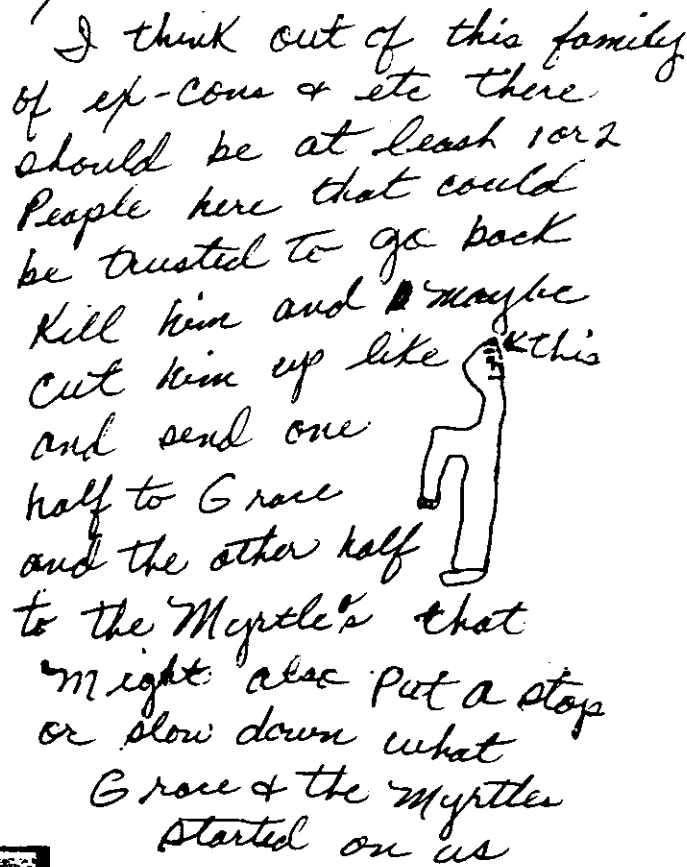 I think out of this family
of ex-cons & etc there
should be at leash 1 or 2
People here that could
be trusted to go back
Kill him and maybe
cut him up like this
and send one
half to Grace
and the other half
to the Myrtle's that
Might also Put a stop
or slow down what
Grace & the Myrtles
started on us